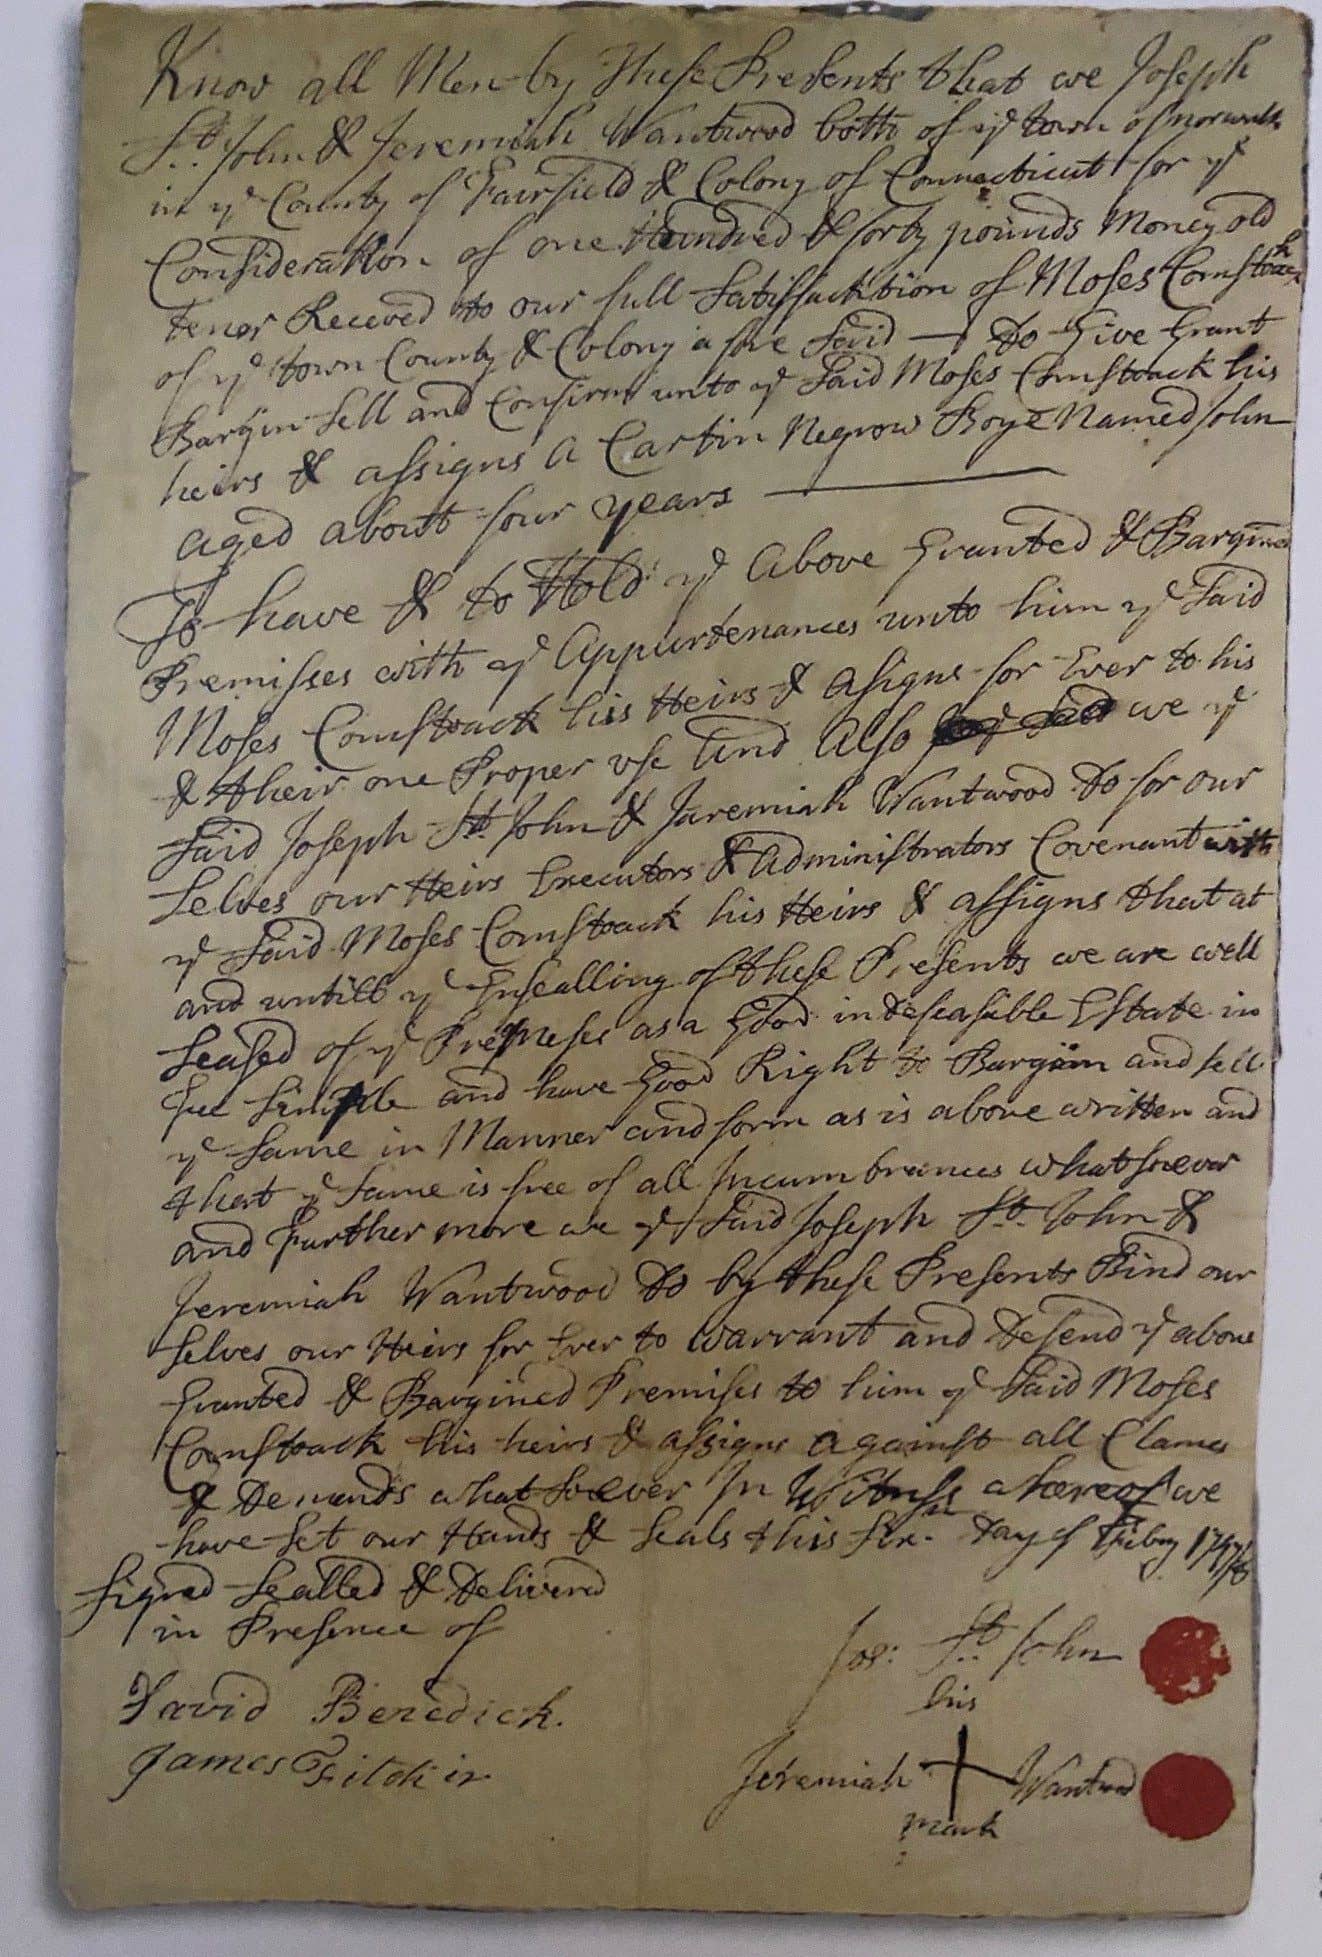 Know all Men by These Presents that we Joseph
St. John & Jeremiah Wantwood both of ye town of norwalk
in ye County of Fairfield & Colony of Connecticut for ye
Consideration of one Hundred & forty pounds Money old
tenor Receved to our full Satisfacktion of Moses Comstock
of ye town County & Colony a fore Said — Do Give Grant
Bargin Sell and Confirm unto ye Said Moses Comstock his
heirs & assigns a Cartin Negrow Boye Named John
aged about four years —
To have & to Hold ye above Granted & Bargined
Premisses with ye Appurtenances unto him ye Said
Moses Comstoack his Heirs & asigns for Ever to his
& their one Proper use And Also we ye
Said Joseph St. John & Jaremiah Wantwood Do for our
Selves our Heirs Executors & Administrators Covenant with
ye Said Moses Comstoack his Heirs & assigns that at
and untill ye Ensealling of these Presents we are well
Seased of ye Premeses as a Good indefeasible Estate in
Fee Simple and have Good Right to Bargin and sell
ye Same in Manner and form as is above written and
that ye Same is free of all Incumbrances whatsoever
and Further more we ye Said Joseph St. John &
Jeremiah Wantwood Do by these Presents Bind our
Selves our Heirs for Ever to warrant and Defend ye above
Granted & Bargined Premises to him ye Said Moses
Comstoack his heirs & assigns against all Clames
& Demands what soever In Witness whereof we
have Set our Hands & Seals this Day of 1747/8
Signed Sealled & Delivered
in Presence of
Jos: St. John
his
David Benedick.
James
Jeremiah + Wantwood
mark